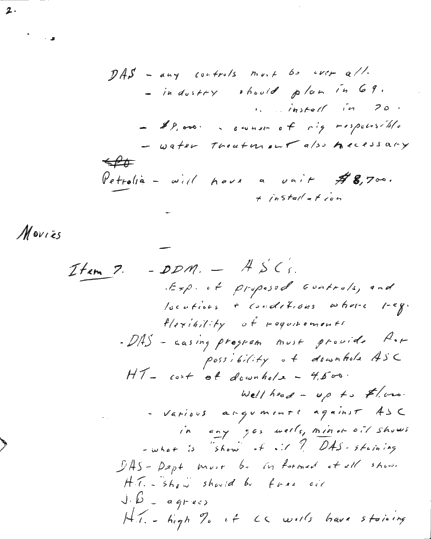 2.
DAS - any controls must be over all.
- industry should plan in 69.
" install in 70.
- $8,000. - owner of rig responsible
- water treatment also necessary
Petrolia - will have a unit $8,700.
+ installation
-
Movies
-
Item 7. - DDM. - ASC's.
Exp. of proposed controls, and
locations + conditions where req.
flexibility of requirements
- DAS - casing program must provide for
possibility of downhole ASC
HT - cost of downhole - 4,500.
Wellhead - up to $1,000.
- various arguments against ASC
in any gas wells, minor oil shows
- what is "show" of oil? DAS - staining
DAS - Dept must be informed of all show.
HT. - "show" should be free oil
J.B - agrees
HT. - high % of wells have staining